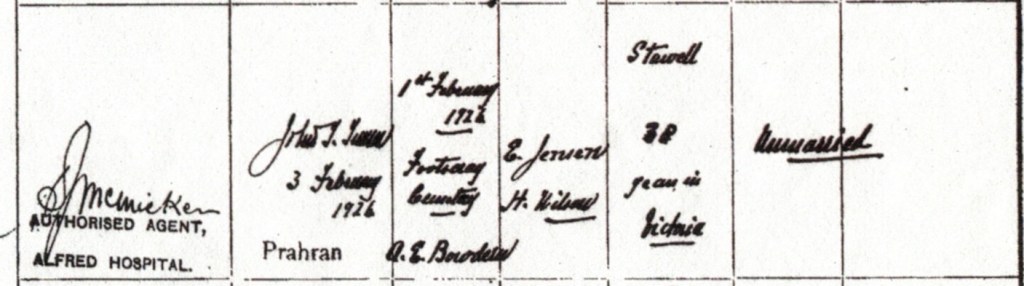 S J McMicken
AUTHORISED AGENT,
ALFRED HOSPITAL.
John S.
3 February
1926
Prahran
1st February
1926
Footscray
Cemetery
A. E. Bowden
E. Jensen
H. Wilson
Stawell
38
years in
Victoria
Unmarried